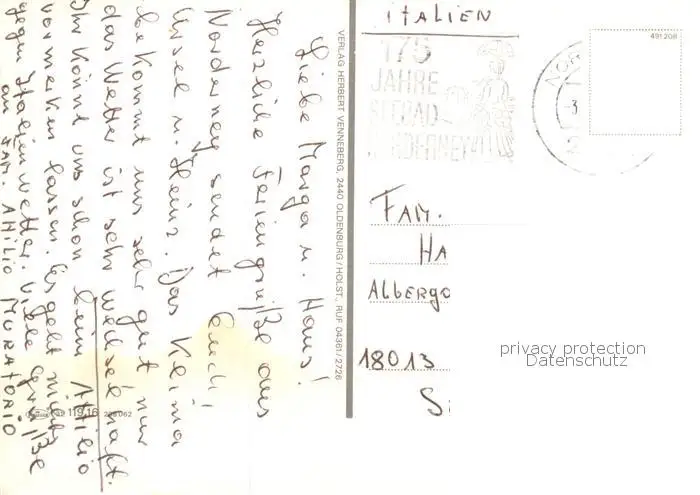 Liebe Marga u. Hans!
Herzliche Feriengrüße aus
Norderney sendet Euch,
Ursel u. Heinz. Das Klima
bekommt uns sehr gut nur
das Wetter ist sehr wechselhaft.
Ihr könnt uns schon beim Attilio
vormerken lassen. Es geht nichts
gegen Italienwetter. Viele Grüße
an FAM. Attilio MURATORIO
VERLAG HERBERT VENNEBERG, 2440 OLDENBURG/HOLST., RUF 04361/2726
119,16
ITALIEN
175
JAHRE
SEEBAD
NORDERNEY
NOR
491 208
FAM.
HA
ALBERGO
18013
privacy protection
Datenschutz